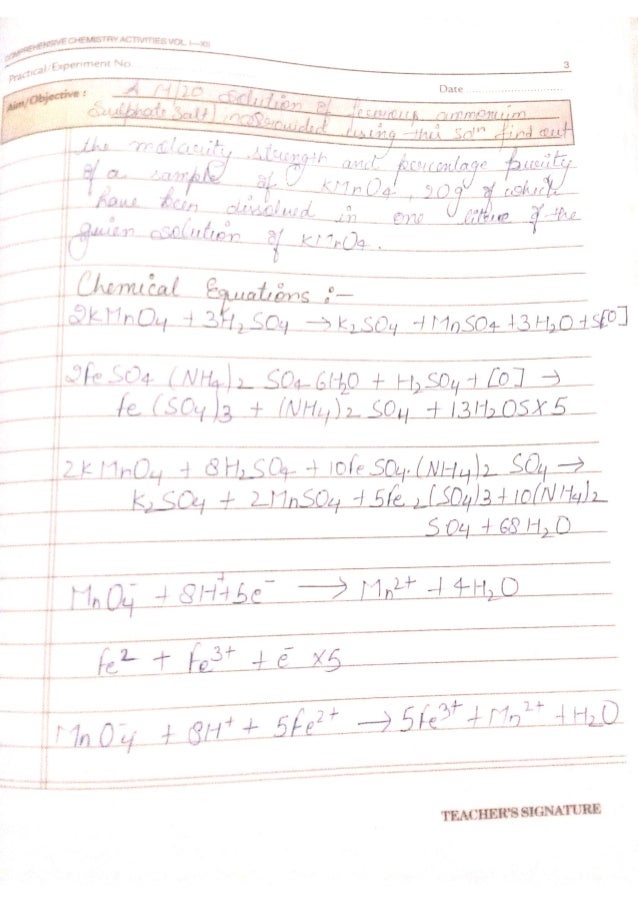 COMPREHENSIVE CHEMISTRY ACTIVITIES VOL. I—XII
3
Practical/Experiment No.
Date
Aim/Objective : A M/20 solution of ferrous ammonium
Sulphate Salt) using this soln find out
the molarity, strength and percentage purity
of a sample of KMnO4, 20g of which
have been dissolved in one litre of the
given solution of KMnO4.
Chemical Equations :-
2KMnO4 + 3H2SO4 → K2SO4 + MnSO4 + 3H2O + 5[O]
2FeSO4 (NH4)2 SO4 6H2O + H2SO4 + [O] →
fe (SO4)3 + (NH4)2 SO4 + 13H2O5X5
2KMnO4 + 8H2SO4 + 10feSO4.(NH4)2 SO4 →
K2SO4 + 2MnSO4 + 5fe2(SO4)3 + 10(NH4)2
SO4 + 68H2O
MnO4- + 8H+ + 5e- → Mn2+ + 4H2O
fe2 + fe3+ + e- X5
MnO4- + 8H+ + 5fe2+ → 5fe3+ + Mn2+ + H2O
TEACHER'S SIGNATURE